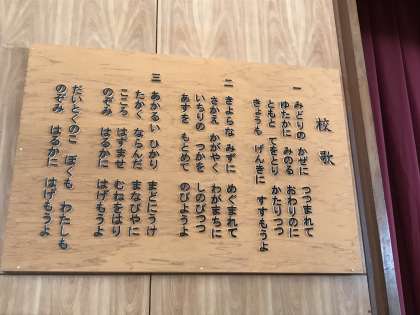 校歌
一 みどりの かぜに つつまれて
ゆたかに みのる おわりのに
ともと てをとり かたりつつ
きょうも げんきに すすもうよ
二 きよらな みずに めぐまれて
さかえ かがやく わがまちに
いちりの つかを しのびつつ
あすを もとめて のびようよ
三 あかるい ひかり まどにうけ
たかく ならんだ まなびやに
こころ はずませ むねをはり
のぞみ はるかに はげもうよ
だいとくのこ ぼくも わたしも
のぞみ はるかに はげもうよ